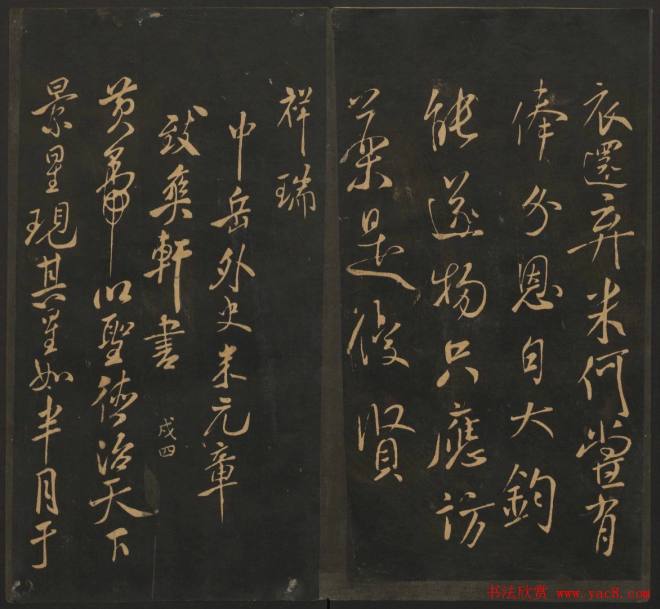 衣還弃米何嘗有
俸分恩自大鈞
能遂物只應訪
藥是優賢
祥瑞
中岳外史米元章
致爽軒書
戍四
黄帝以聖德治天下
景星現其星如半月于
书法欣赏 www.yac8.com